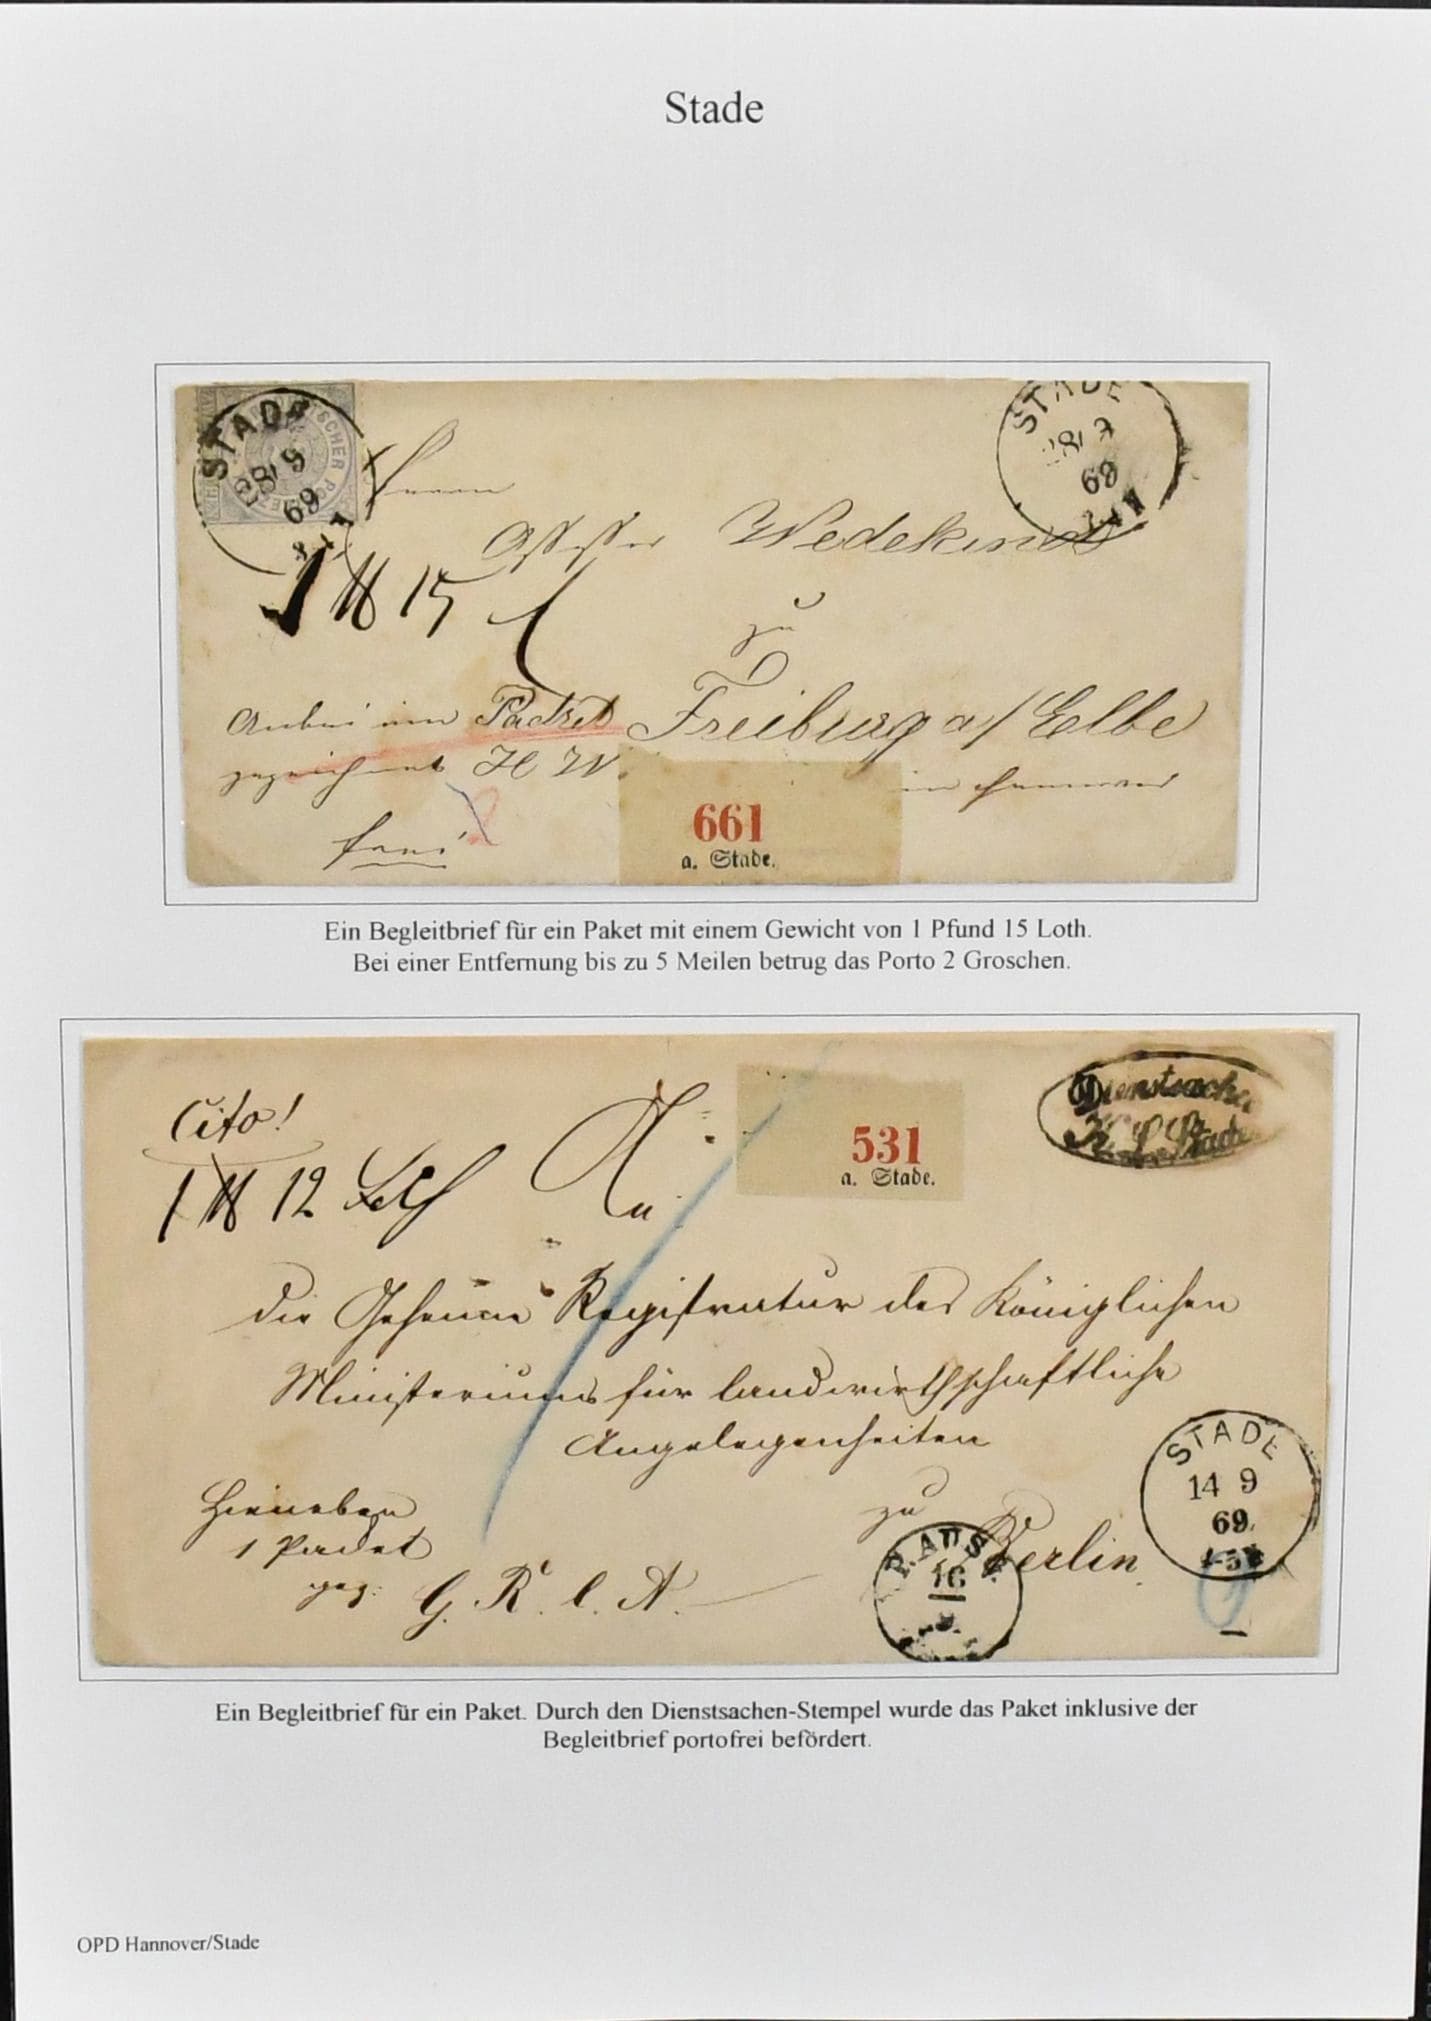 Stade
STADE
28 9
69
STADE
28 9
69
Herrn
Assessor Wedekind
1 ℔ 15
zu
Anbei ein Packet Freiburg a/ Elbe
gezeichnet H W.
in Hannover
frei
661
a. Stade.
Ein Begleitbrief für ein Paket mit einem Gewicht von 1 Pfund 15 Loth.
Bei einer Entfernung bis zu 5 Meilen betrug das Porto 2 Groschen.
Cito!
1 ℔ 12 Lth
An
531
a. Stade.
Dienstsache
K. L. Stade
die Geheime Registratur des Königlichen
Ministeriums für landwirthschaftliche
Angelegenheiten
Hierneben
1 Packet
gez: G. R. l. A.
zu
Berlin
STADE
14 9
69
16
Ein Begleitbrief für ein Paket. Durch den Dienstsachen-Stempel wurde das Paket inklusive der
Begleitbrief portofrei befördert.
OPD Hannover/Stade